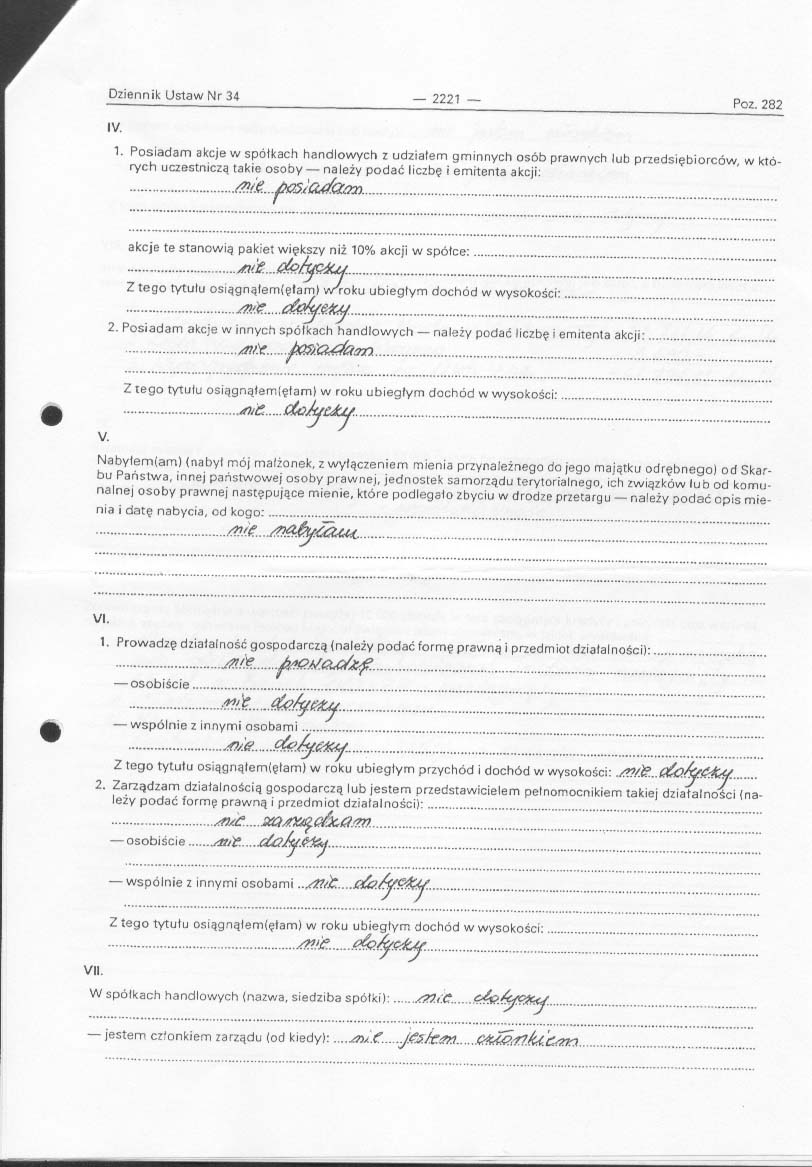 Dziennik Ustaw Nr 34 — 2221 — Poz. 282
IV.
1. Posiadam akcje w spółkach handlowych z udziałem gminnych osób prawnych lub przedsiębiorców, w któ-
rych uczestniczą takie osoby — należy podać liczbę i emitenta akcji:
nie posiadam
akcje te stanowią pakiet większy niż 10% akcji w spółce:
nie dotyczy
Z tego tytułu osiągnąłem(ęłam) w roku ubiegłym dochód w wysokości:
nie dotyczy
2. Posiadam akcje w innych spółkach handlowych — należy podać liczbę i emitenta akcji:
nie posiadam
Z tego tytułu osiągnąłem(ęłam) w roku ubiegłym dochód w wysokości:
nie dotyczy
V.
Nabyłem(am) (nabył mój małżonek, z wyłączeniem mienia przynależnego do jego majątku odrębnego) od Skar-
bu Państwa, innej państwowej osoby prawnej, jednostek samorządu terytorialnego, ich związków lub od komu-
nalnej osoby prawnej następujące mienie, które podlegało zbyciu w drodze przetargu — należy podać opis mie-
nia i datę nabycia, od kogo:
nie nabyłam
VI.
1. Prowadzę działalność gospodarczą (należy podać formę prawną i przedmiot działalności):
nie prowadzę
— osobiście
nie dotyczy
— wspólnie z innymi osobami
nie dotyczy
Z tego tytułu osiągnąłem(ęłam) w roku ubiegłym przychód i dochód w wysokości: nie dotyczy
2. Zarządzam działalnością gospodarczą lub jestem przedstawicielem pełnomocnikiem takiej działalności (na-
leży podać formę prawną i przedmiot działalności):
nie zarządzam
— osobiście nie dotyczy
— wspólnie z innymi osobami nie dotyczy
Z tego tytułu osiągnąłem(ęłam) w roku ubiegłym dochód w wysokości:
nie dotyczy
VII.
W spółkach handlowych (nazwa, siedziba spółki): nie dotyczy
— jestem członkiem zarządu (od kiedy): nie jestem członkiem